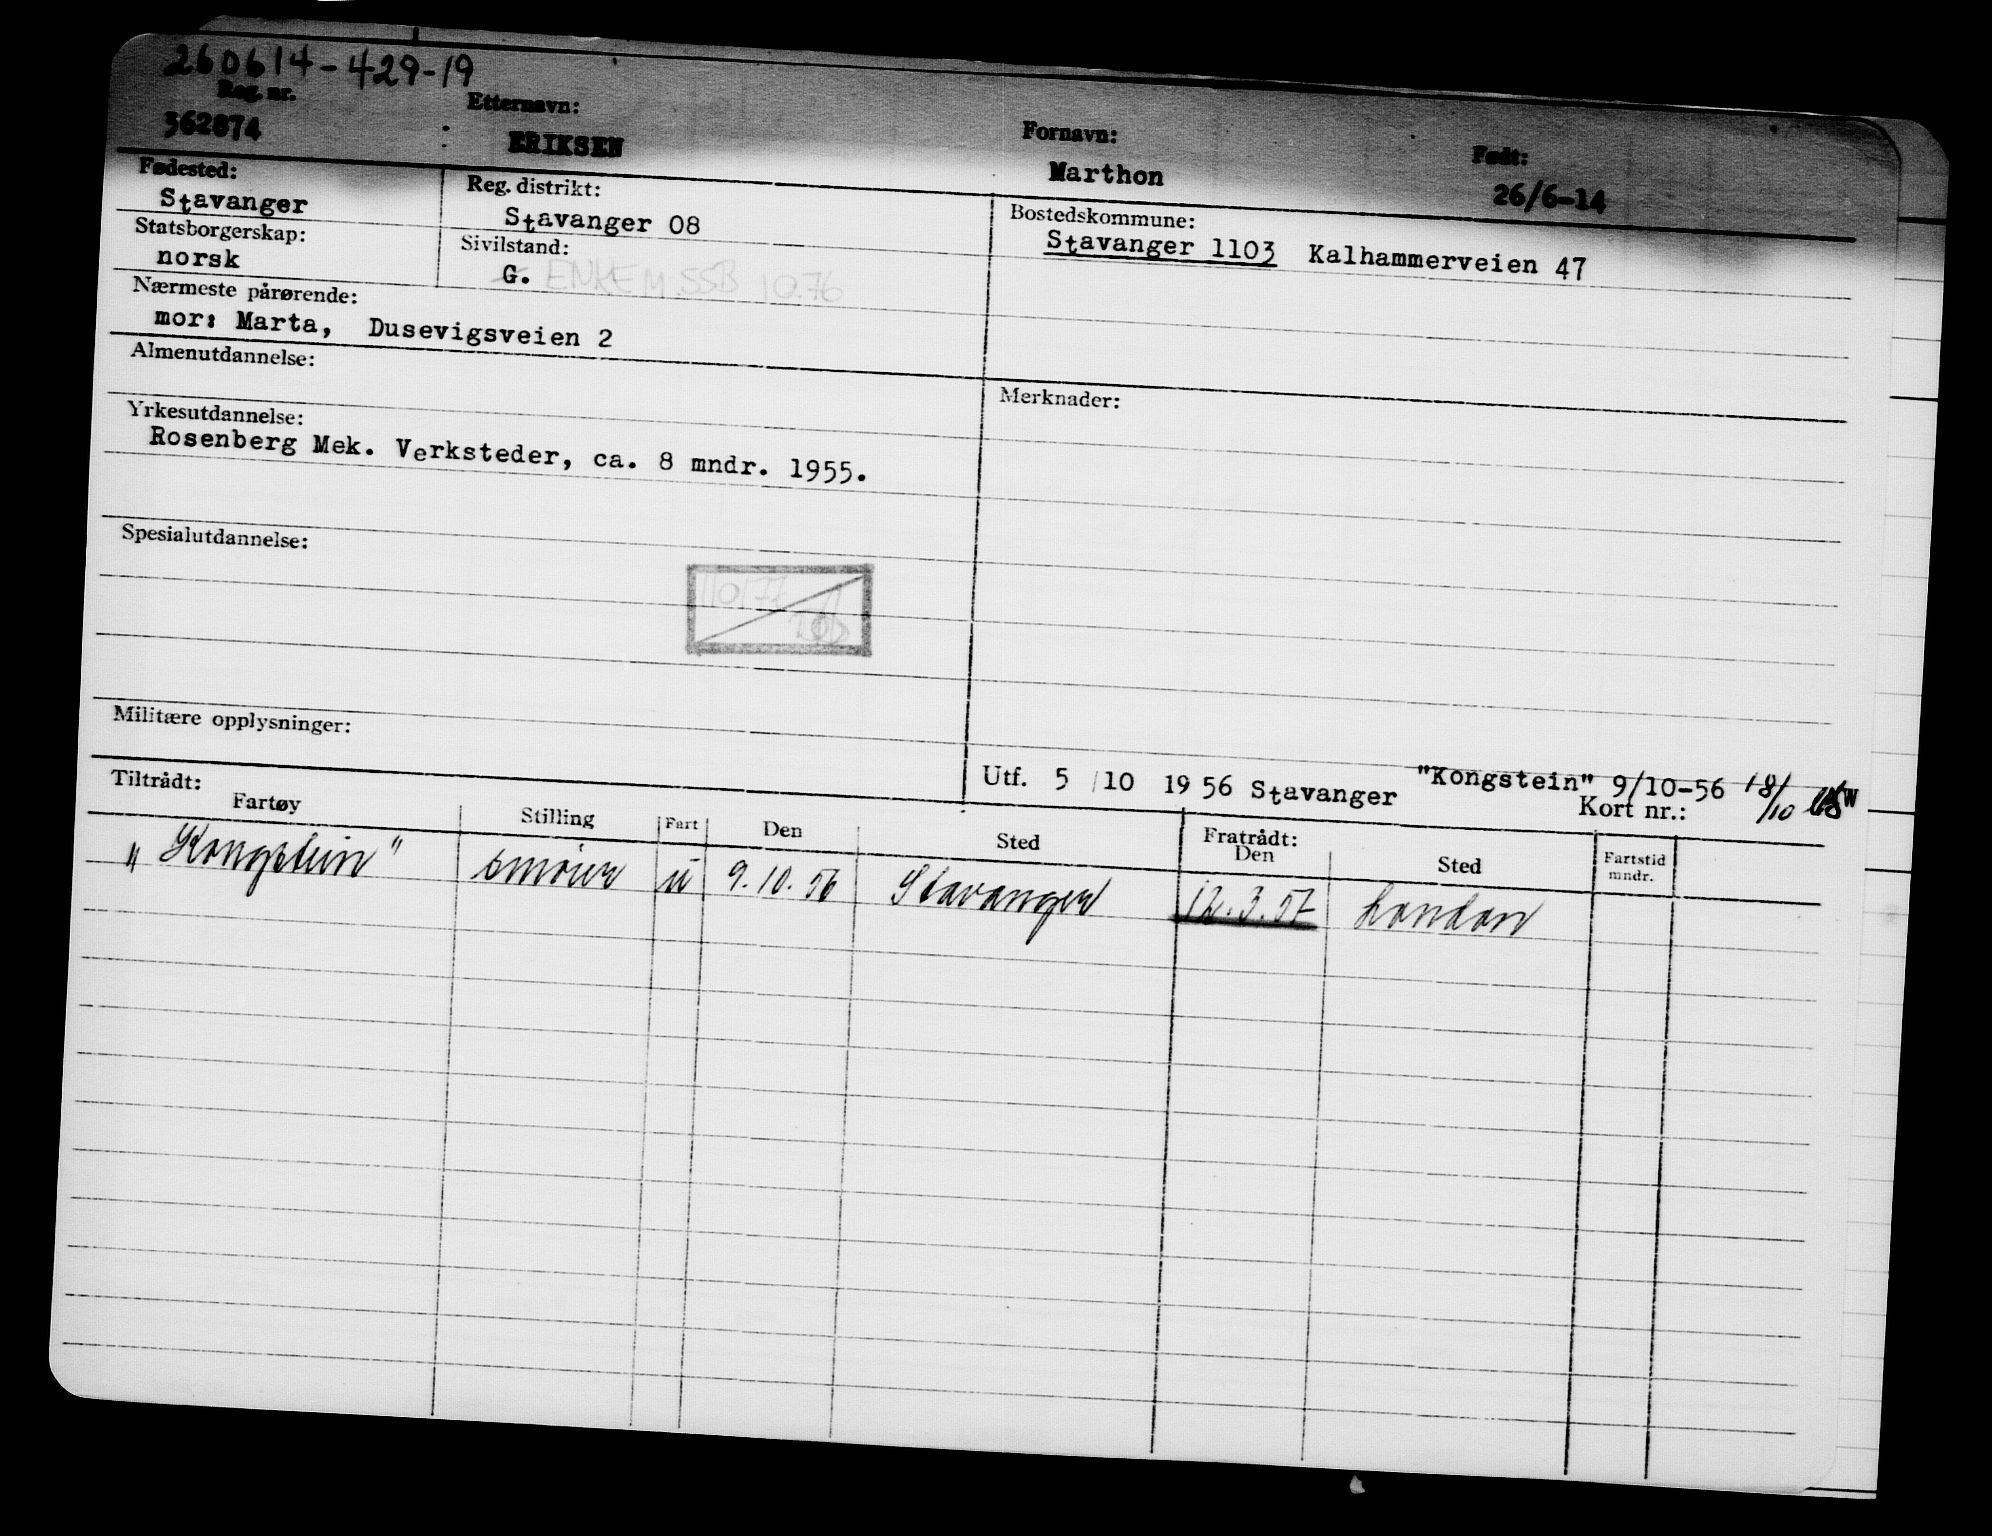 260614-429-19
Reg. nr. Etternavn: Fornavn: Født:
362874 : ERIKSEN Marthon 26/6-14
Fødested: Reg. distrikt: Bostedskommune:
Stavanger Stavanger 08 Stavanger 1103 Kalhammerveien 47
Statsborgerskap: Sivilstand:
norsk G. ENKEM. SSB 10.76
Nærmeste pårørende:
mor: Marta, Dusevigsveien 2
Almenutdannelse: Merknader:
Yrkesutdannelse:
Rosenberg Mek. Verksteder, ca. 8 mndr. 1955.
Spesialutdannelse:
Militære opplysninger:
Utf. 5/10 1956 Stavanger "Kongstein" 9/10-56 18/10
Kort nr.:
Tiltrådt: Fratrådt:
Fartøy Stilling Fart Den Sted Den Sted Fartstid mndr.
"Kongstein" smører u 9.10.56 Stavanger 12.3.57 London